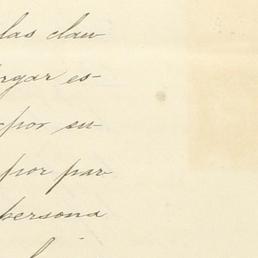 las clau
rgar es-
por su-
por par-
persona